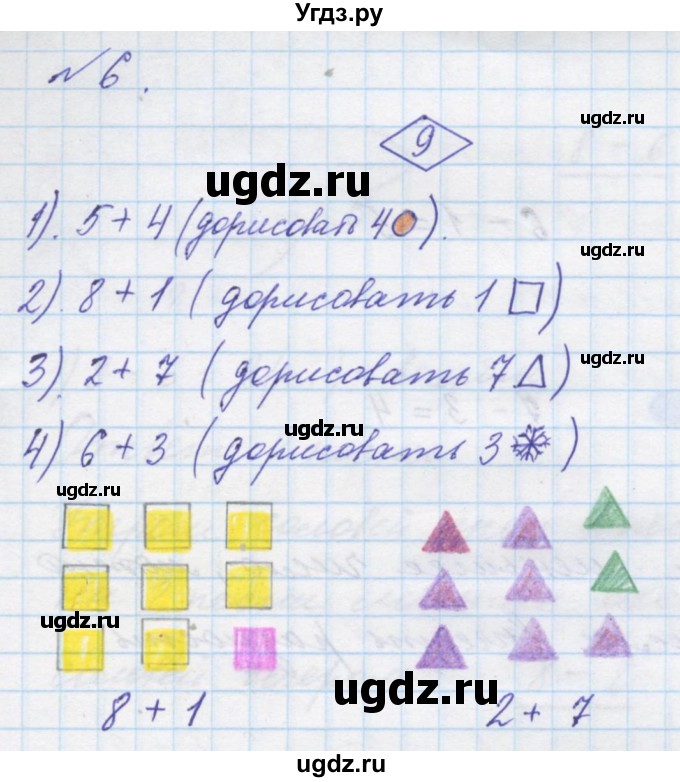 Угдз.ру
№ 6.
ugdz.ru
9
ugdz.ru
ugdz.ru
1). 5 + 4 (дорисовать 4 ).
ugdz.ru
2). 8 + 1 ( дорисовать 1 )
3). 2 + 7 ( дорисовать 7 )
ugdz.ru
ugdz.ru
4) 6 + 3 ( дорисовать 3 )
ugdz.ru
ugdz.ru
ugdz.ru
ugdz.ru
8 + 1
2 + 7
ugdz.ru
ugdz.ru
ugdz.ru